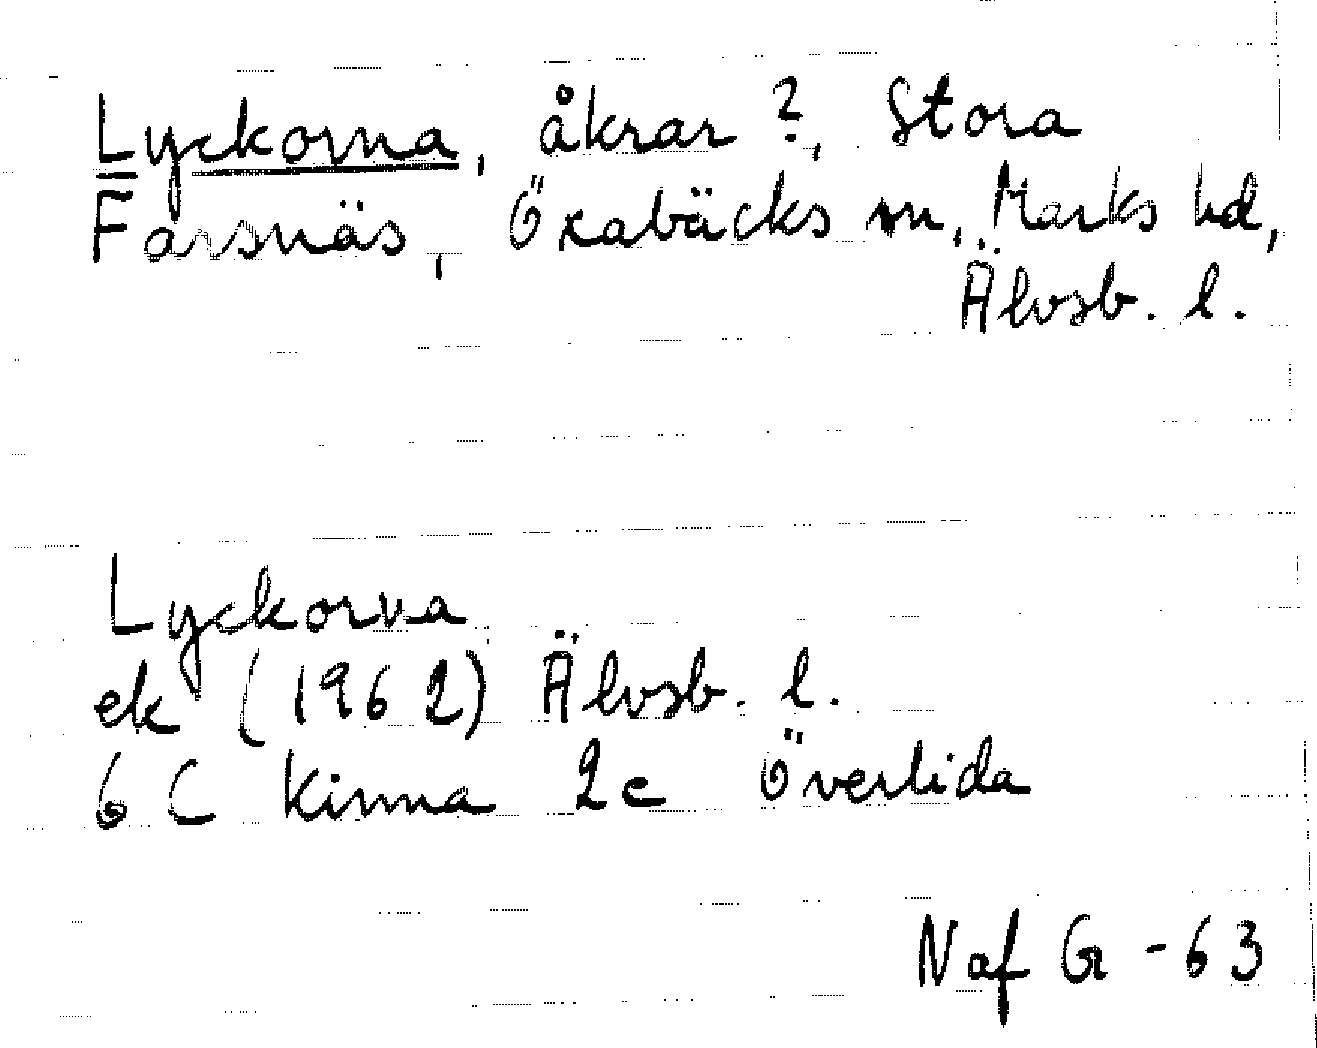 Lyckorna, åkrar ?, Stora
Farsnäs, Öxabäcks sn, Marks hd,
Älvsb. l.
Lyckorna
ek (1962) Älvsb. l.
6 C Kinna 2c Överlida
Naf G -63